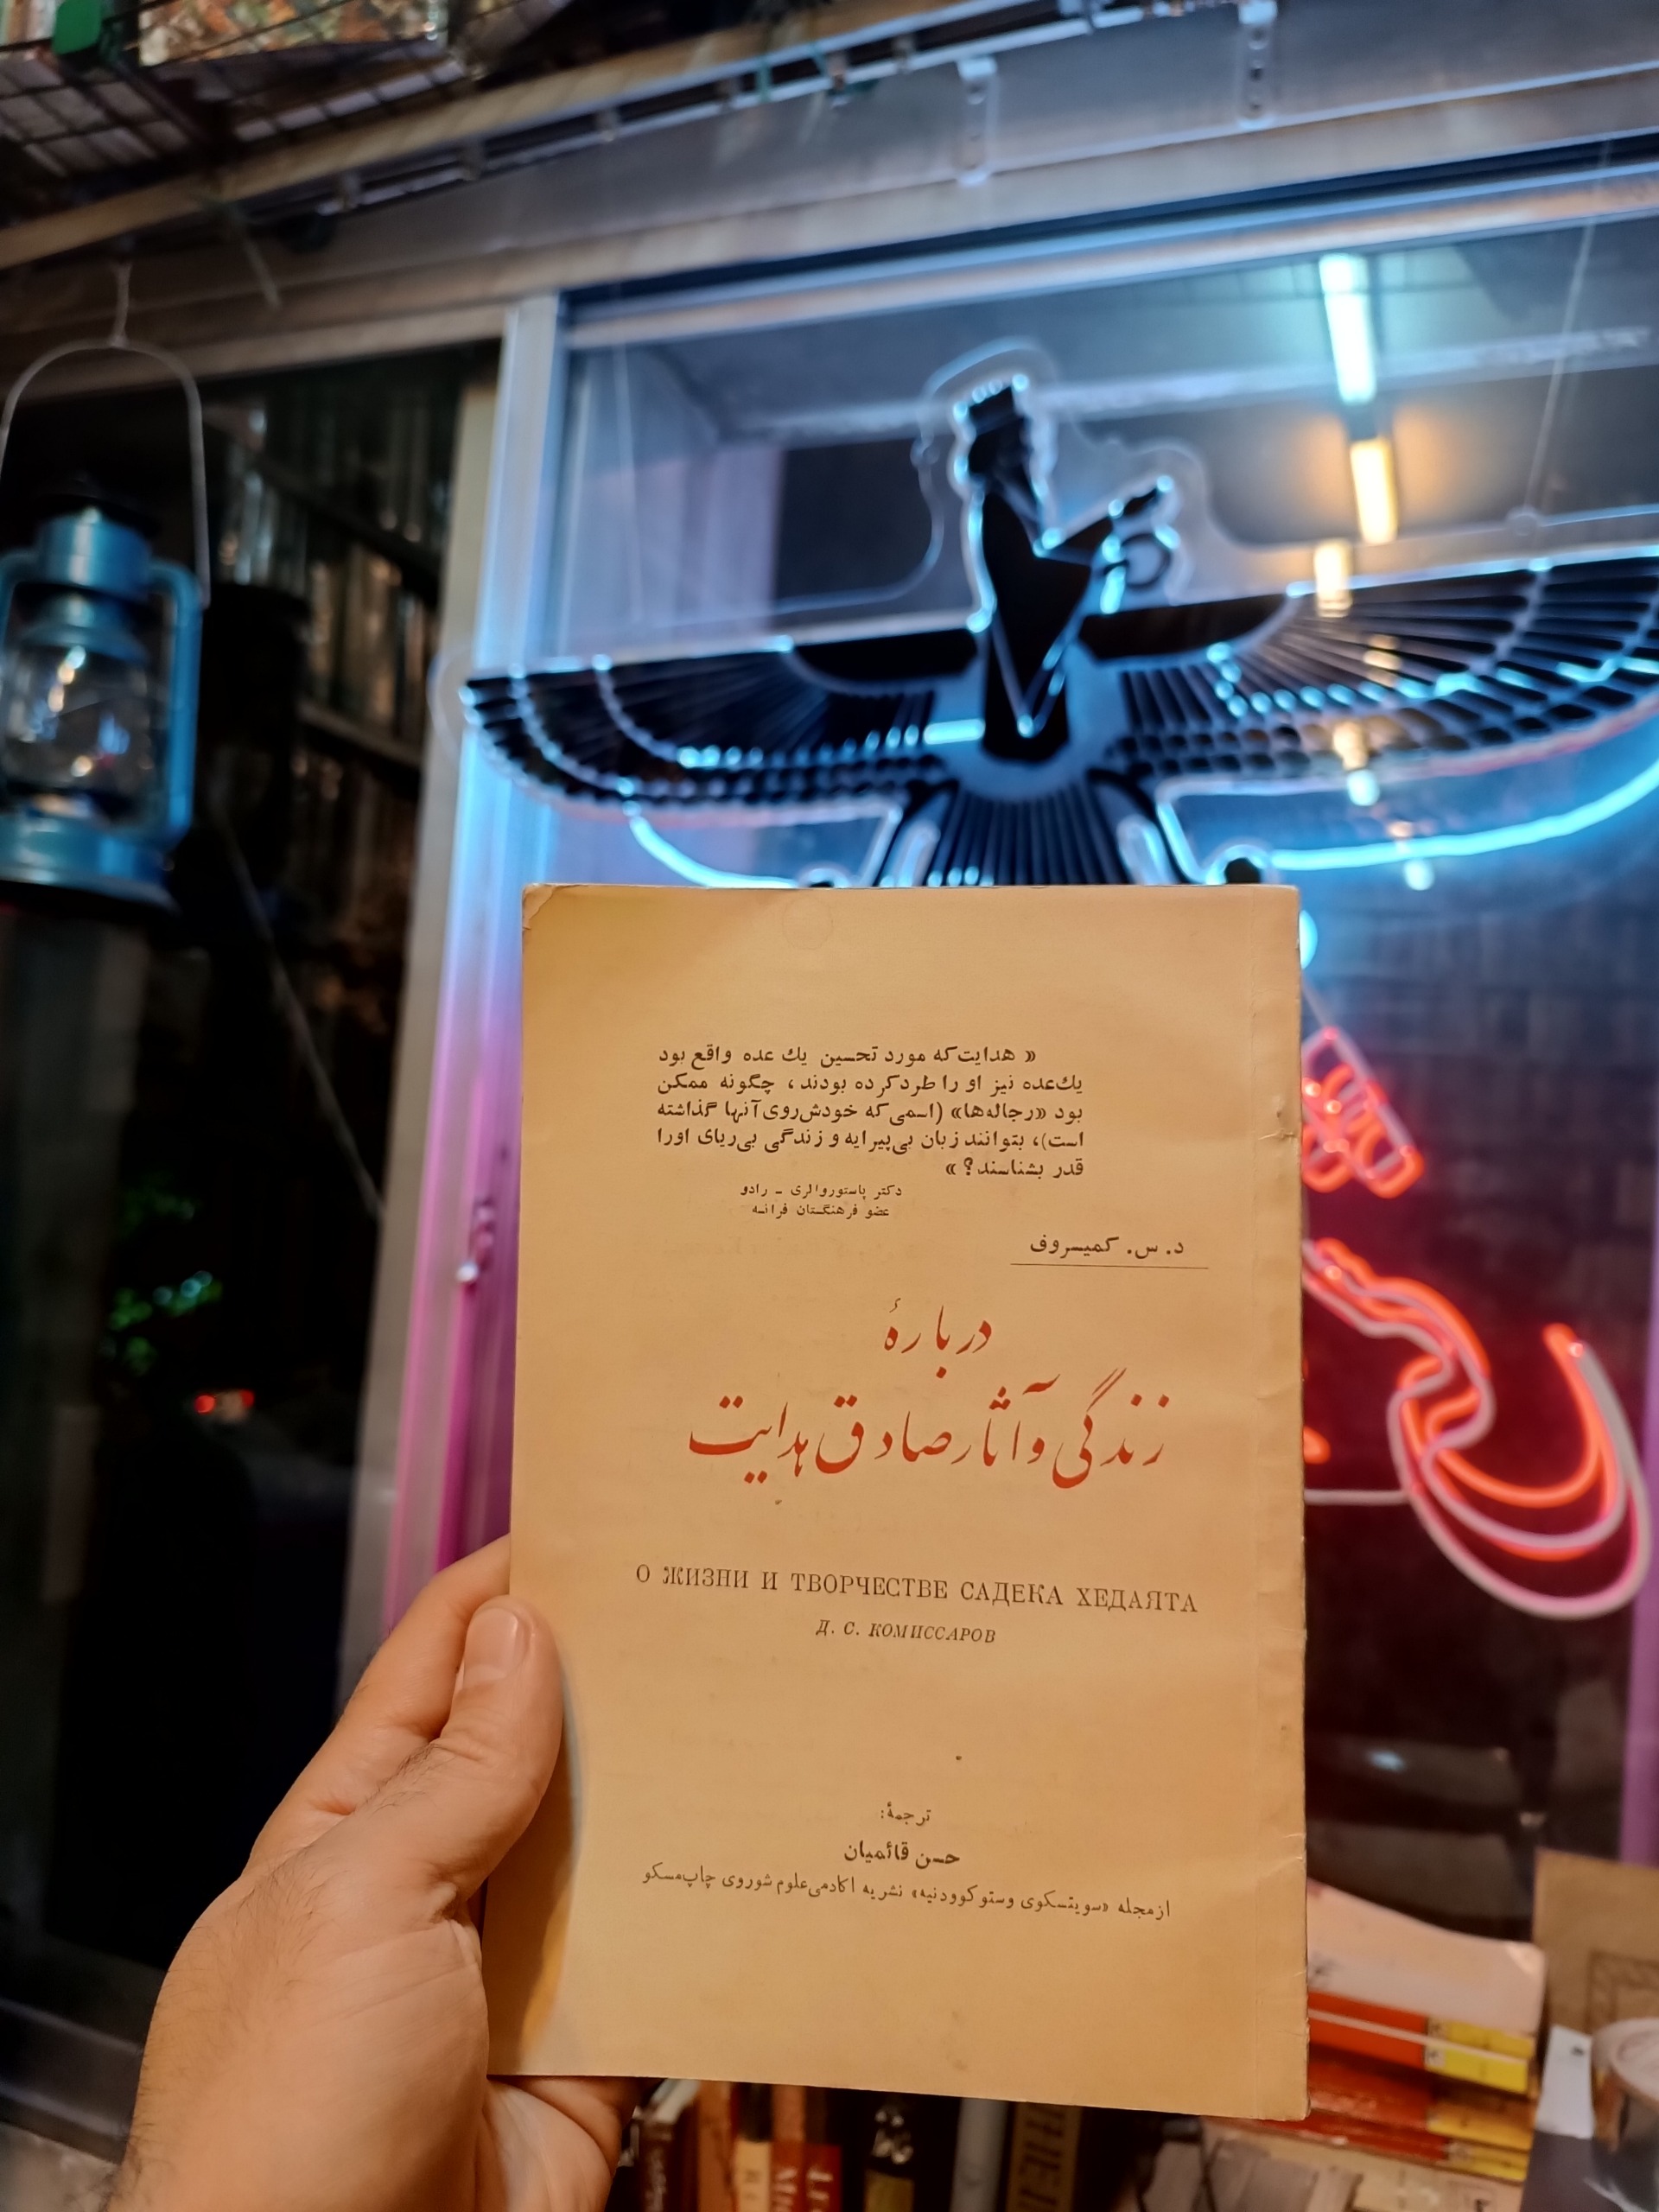 « هدایت که مورد تحسین یك عده واقع بود
یك‌عده نیز او را طرد کرده بودند، چگونه ممکن
بود «رجاله‌ها» (اسمی که خودش روی آنها گذاشته
است)، بتوانند زبان بی‌پیرایه و زندگی بی‌ریای اورا
قدر بشناسند؟ »
دکتر پاستوروالری - رادو
عضو فرهنگستان فرانسه
د. س. کمیسروف
دربارهٔ
زندگی و آثار صادق هدایت
О ЖИЗНИ И ТВОРЧЕСТВЕ САДЕКА ХЕДАЯТА
Д. С. КОМИССАРОВ
ترجمهٔ:
حسن قائمیان
از مجله «سویتسکوی وستو کوودنیه» نشریه اکادمی علوم شوروی چاپ مسکو